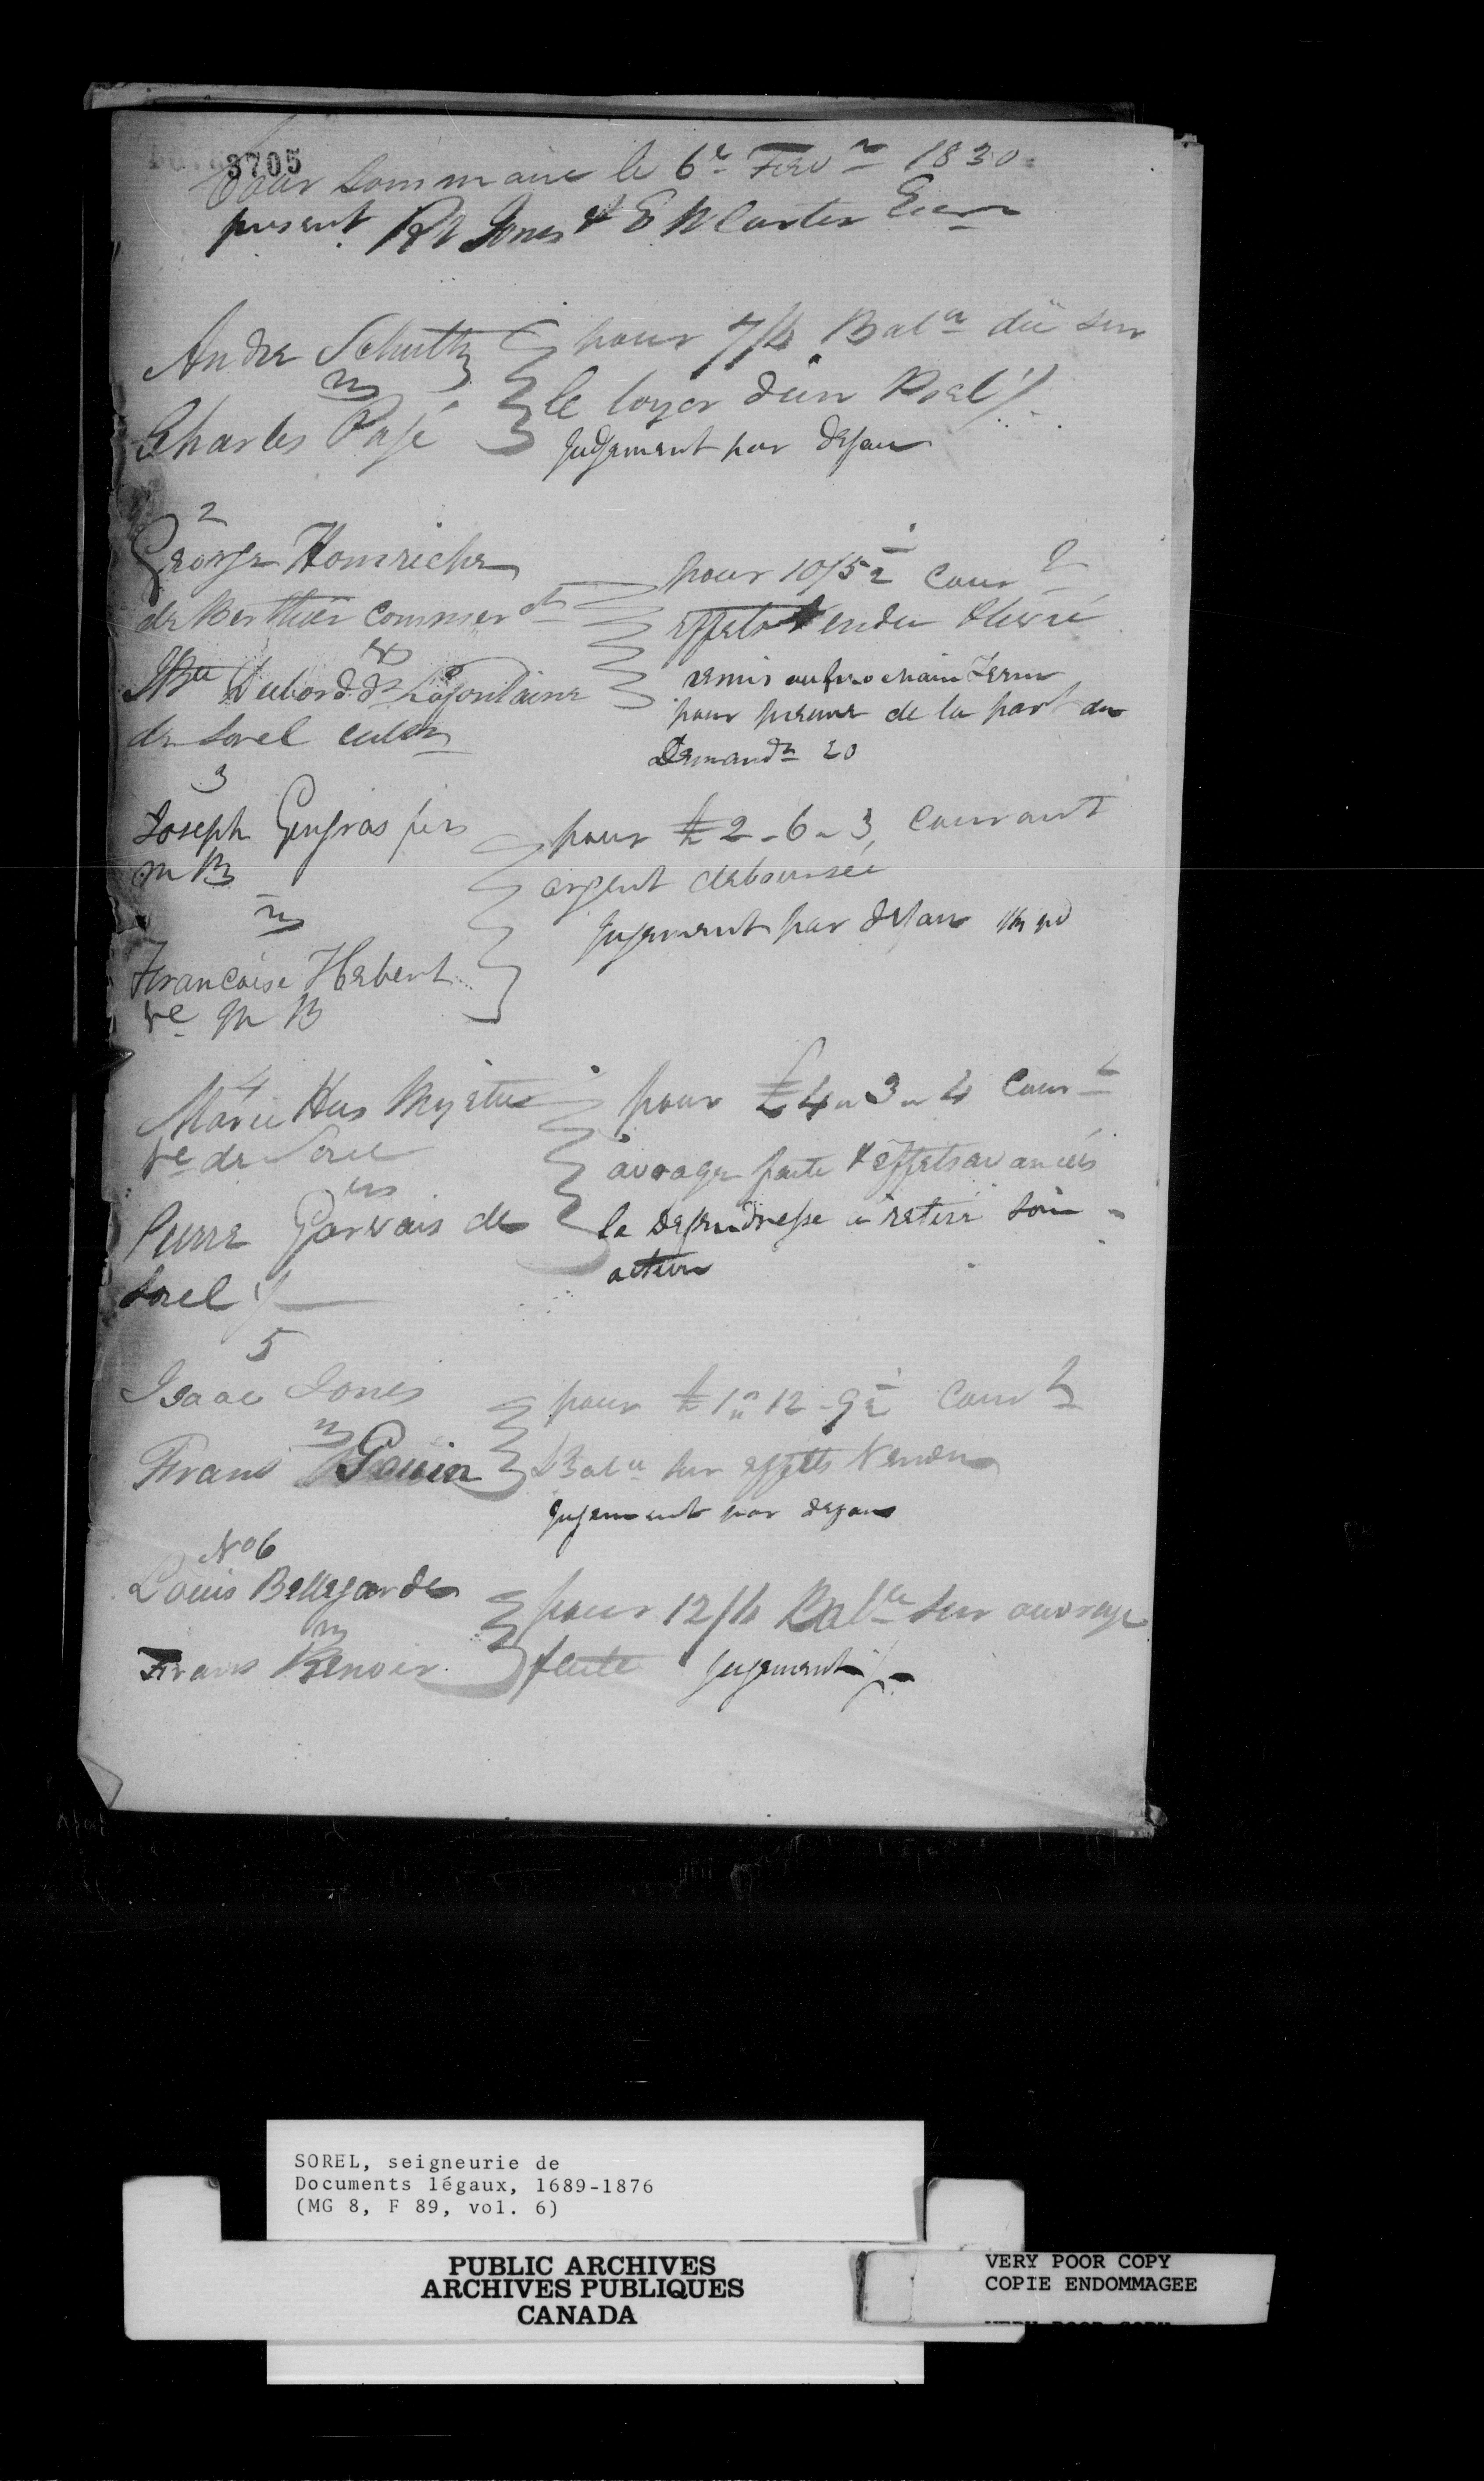 3705
Cour Sommaire le 6e Fevr 1830
present Rt Jones & E N Carter Ecrs
Andre Schultz
vs
Charles Pajé
pour 7/6 Balce dü sur
le loyer d'un
Judgement par defau
2
George Homriche
de Berthier Commerct
vs
JBte Dubord dt Lafontaine
de Sorel Cultr
pour 10/5½ Cour
effets Vendu & livré
remis au prochain Term
pour preuve de la part du
Demandr 20
3
Joseph Gengras fils
M B
vs
Francoise Hebert
Ve M B
pour £2-6-3 Courant
argent deboursée
Jujement par defau
4
Marie Hus
Ve de Sorel
vs
Pierre Garvais de
Sorel
pour £4-3-4 Court
ouvrage faite & effets avancés
la Defendresse a retiré Son
action
5
Isaac Jones
vs
Frans Gouin
pour £1-12-9½ Court
Balce sur effetts Vendu
Jujement par defau
No 6
Louis Bellegarde
vs
Frans Benoir
pour 12/6 Balce sur ouvrage
faite Jujement
SOREL, seigneurie de
Documents légaux, 1689-1876
(MG 8, F 89, vol. 6)
PUBLIC ARCHIVES
ARCHIVES PUBLIQUES
CANADA
VERY POOR COPY
COPIE ENDOMMAGEE
VERY POOR COPY